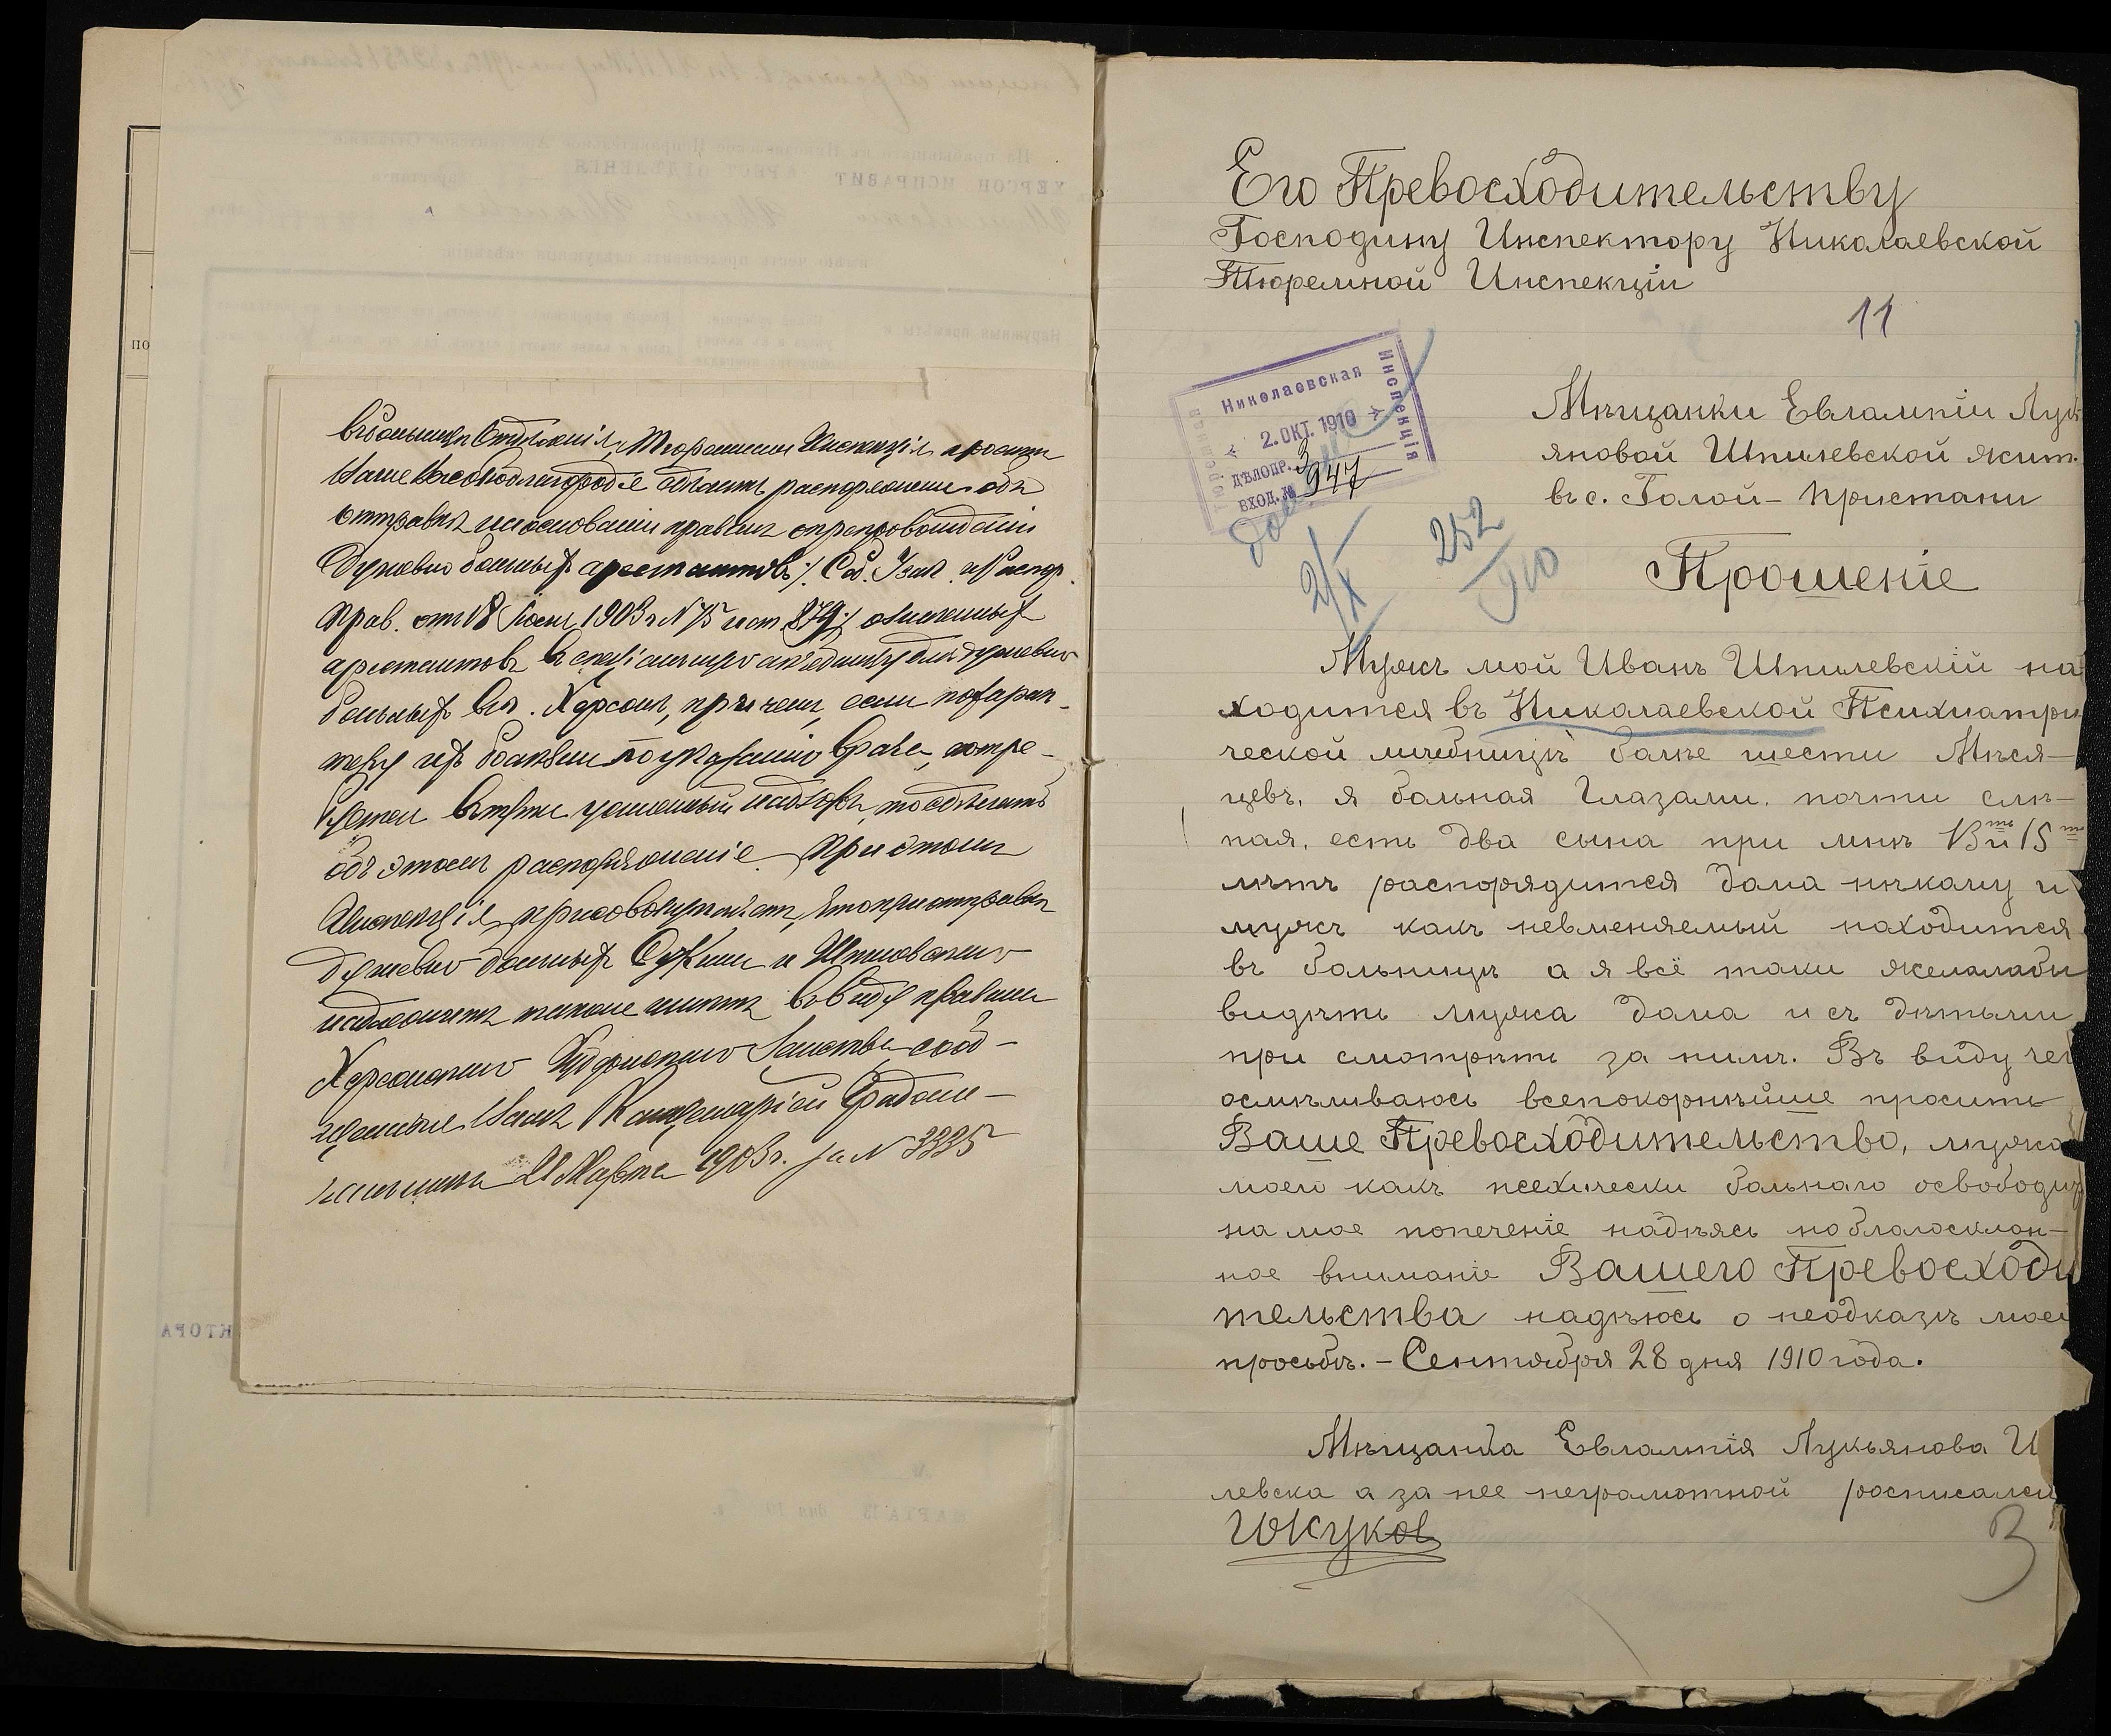 въ больницѣ Отдѣленія, Тюремная Инспекція проситъ
Ваше Высокоблагородіе сдѣлать распоряженіе объ
отправкѣ на основаніи правилъ о препровожденіи
душевно больныхъ арестантовъ /. Соб. Узак. и Распор.
Прав. от 18 1903 г. N 75 и ст. 879 /. означенныхъ
арестантовъ въ спеціальную лѣчебницу для душевно
больныхъ въ г. Херсонъ, при чемъ, если по харак-
теру ихъ болѣзни по указанію врача, потре-
буется въ пути усиленный надзоръ, то сдѣлать
объ этомъ распоряженіе. При этомъ
Инспекція присовокупляетъ, что при отправкѣ
душевно больныхъ и Шпилевскаго
надлежитъ также имѣть въ виду правила
Херсонскаго Губернскаго Земства сооб-
щенныя Вамъ Канцеляріей Градона-
чальника 21 Марта 1903 г. за N 3335
Его Превосходительству
Господину Инспектору Николаевской
Тюремной Инспекціи
11
Николаевская
Инспекція
2. ОКТ. 1910
ДѢЛОПР. 3
ВХОД. № 947
2/X
252
910
Мѣщанки Евлампіи Лукь
яновой Шпилевской жит.
въ с. Голой-Пристани
Прошеніе
Мужъ мой Иванъ Шпилевскій на
ходится въ Николаевской Психиатри
ческой личебницѣ болѣе шести Мѣся-
цевъ, я больная Глазами, почти слѣ-
пая, есть два сына при мнѣ 13ть и 15ть
лѣтъ распорядится дома нѣкому и
мужъ какъ невменяемый находится
въ больницѣ а я всё таки желалабы
видѣть мужа дома и съ дѣтьми
при смотрѣть за нимъ. Въ виду чег
осмѣливаюсь всепокорнѣйше просить
Ваше Превосходительство, мужа
моего какъ псехически больного освободит
на мое попеченіе надѣясь на благосклон-
ное вниманіе Вашего Превосходи
тельства надѣюсь о неодказѣ моей
просьбѣ. - Сентября 28 дня 1910 года.
Мѣщанка Евлампія Лукьянова Ш
левска а за нее неграмотной росписалси
Жуков
3